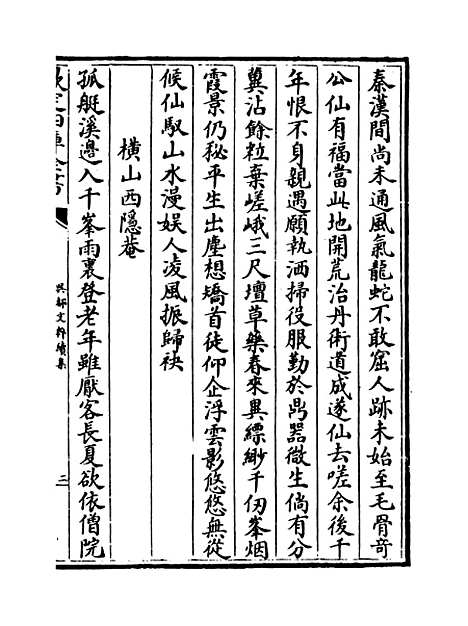 秦漢間尚未通風氣龍蛇不敢窟人跡未始至毛骨竒
公仙有福當此地開荒治丹術道成遂仙去嗟余後千
年恨不身親遇願執洒掃役服勤於鼎器微生倘有分
冀沾餘粒棄嵯峨三尺壇草藥春來異縹緲千仞峯烟
霞景仍秘平生出塵想矯首徒仰企浮雲影悠悠無從
候仙馭山水漫娱人凌風振歸袂
橫山西隱菴
孤艇溪邊入千峯雨裏登老年雖厭客長夏欲依僧院
欽定四庫全書
吳都文粹續集
三